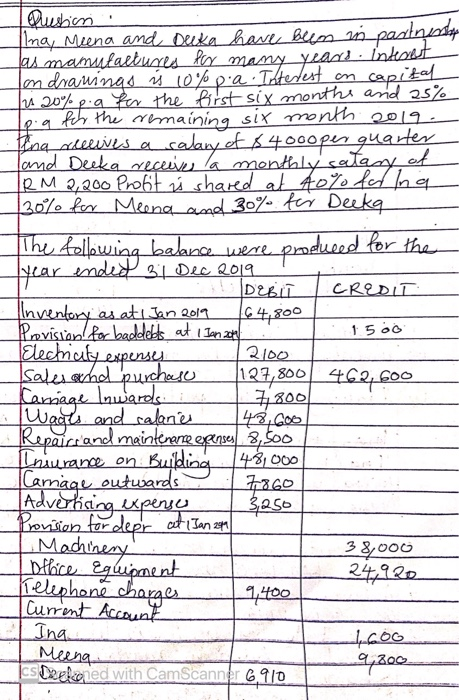 Question:
Ina, Meena and Deeka have been in partnership
as manufactures for many years. Interest
on drawings is 10% p.a. Interest on capital
is 20% p.a for the first six months and 25%
p.a for the remaining six month 2019.
Ina receives a salary of $4000 per quarter
and Deeka receives a monthly salary of
RM 2,200 Profit is shared at 40% for Ina
30% for Meena and 30% for Deeka
The following balance were produced for the
year ended 31 Dec 2019
DEBIT CREDIT
Inventory as at 1 Jan 2019 64,800
Provision for baddebts at 1 Jan 2019 1500
Electricity expenses 2100
Sales and purchase 127,800 462,600
Carriage Inwards 7,800
Wages and salaries 48,600
Repairs and maintenance expenses 8,500
Insurance on Building 48,000
Carriage outwards 7,860
Advertising expenses 3,250
Provision for depr at 1 Jan 2019
Machinery 38,000
Office Equipment 24,920
Telephone charges 9,400
Current Account
Ina 1,600
Meena 9,800
Deeka 6,910
CS Scanned with CamScanner